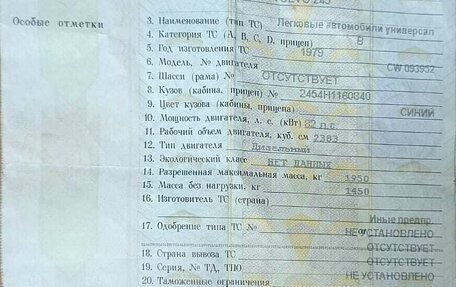 VOLVO 245
Особые отметки
3. Наименование (тип ТС) Легковые автомобили универсал
4. Категория ТС (A, B, C, D, прицеп) B
5. Год изготовления ТС 1979
6. Модель, № двигателя CW 093952
7. Шасси (рама) № ОТСУТСТВУЕТ
8. Кузов (кабина, прицеп) № 2454H1160840
9. Цвет кузова (кабины, прицепа) СИНИЙ
10. Мощность двигателя, л. с. (кВт) 82 л.с
11. Рабочий объем двигателя, куб. см 2383
12. Тип двигателя Дизельный
13. Экологический класс НЕТ ДАННЫХ
14. Разрешенная максимальная масса, кг 1950
15. Масса без нагрузки, кг 1450
16. Изготовитель ТС (страна)
Иные предпр.
17. Одобрение типа ТС № НЕ УСТАНОВЛЕНО
от
ОТСУТСТВУЕТ
18. Страна вывоза ТС ОТСУТСТВУЕТ
19. Серия, № ТД, ТПО НЕ УСТАНОВЛЕНО
20. Таможенные ограничения